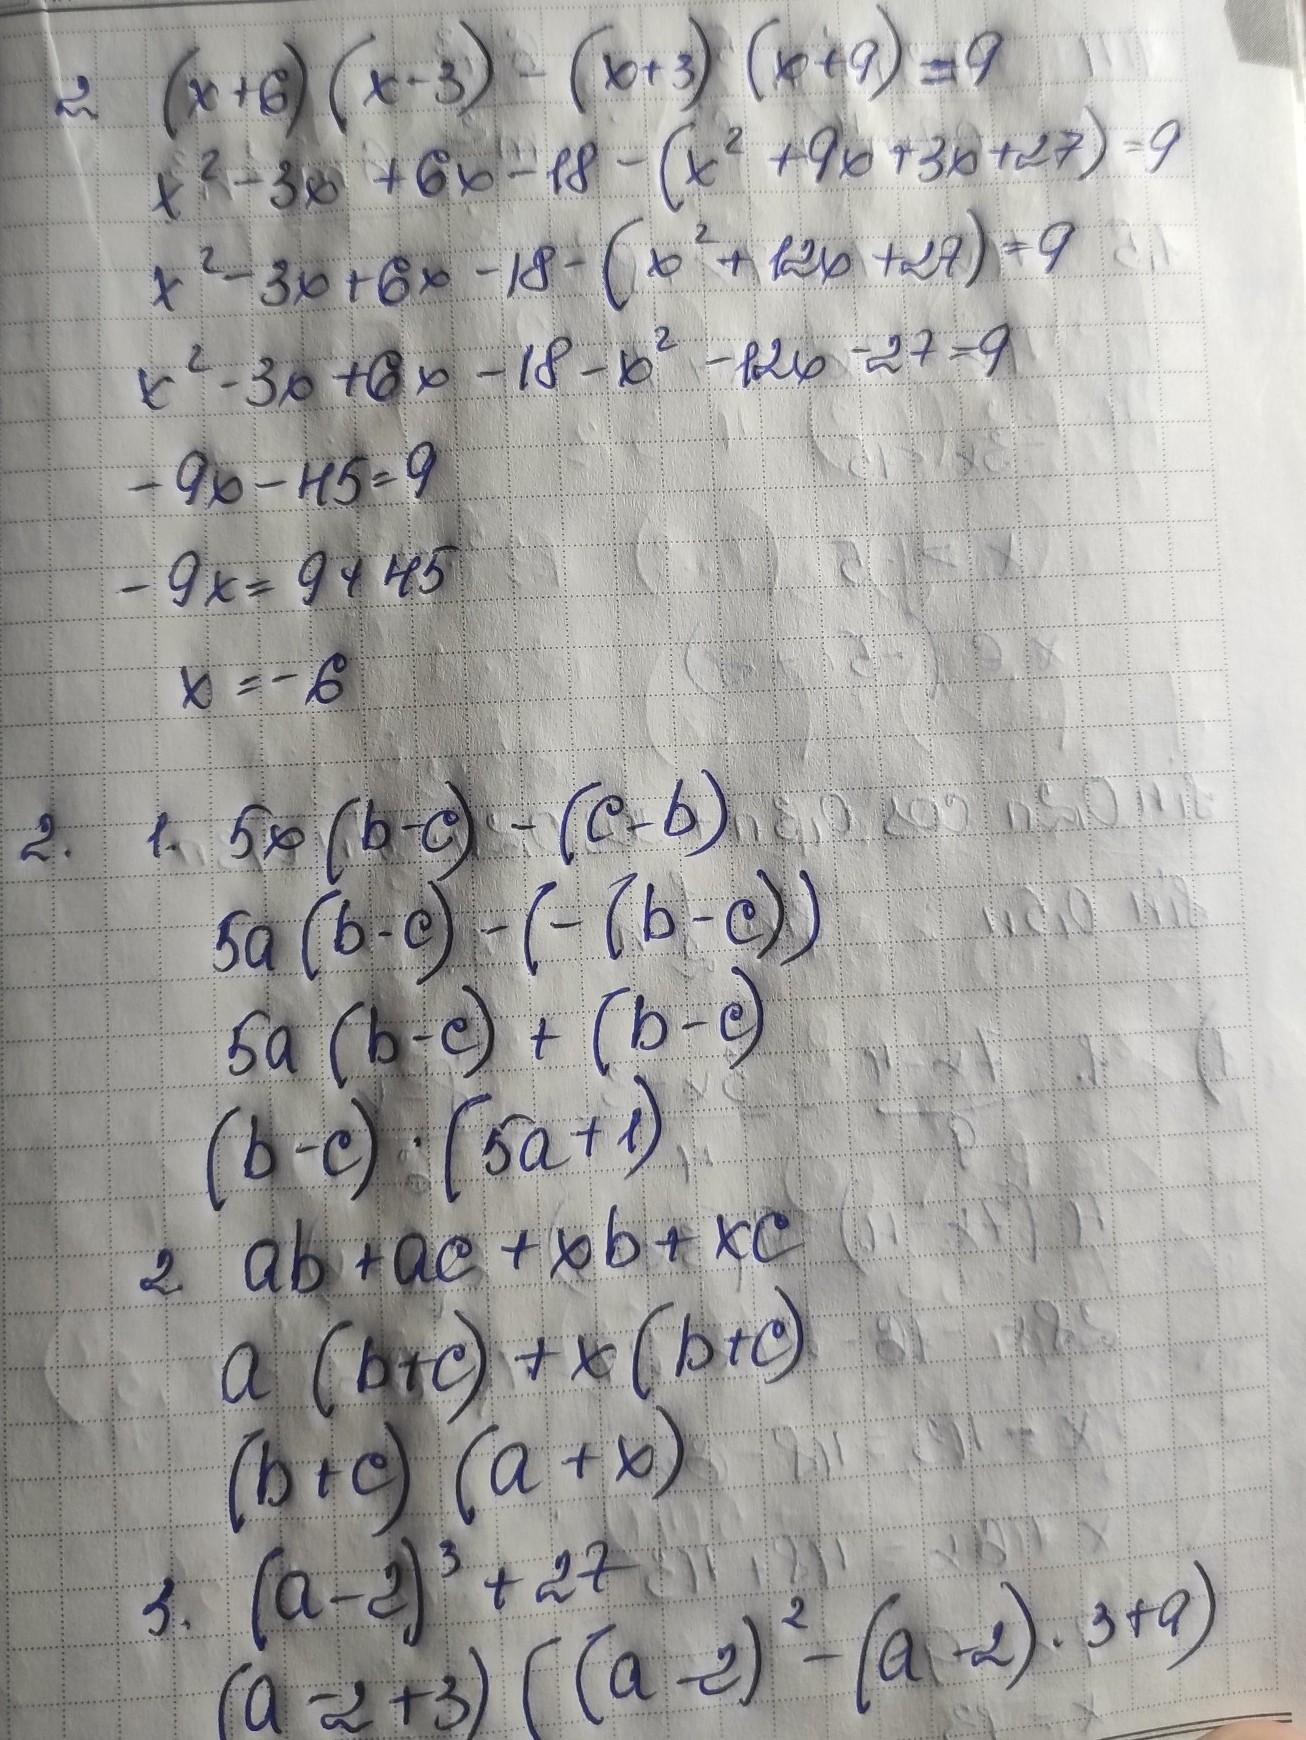 2 (x+6)(x-3) - (x+3)(x+9)=9
x²-3x+6x-18-(x²+9x+3x+27)=9
x²-3x+6x-18-(x²+12x+27)=9
x²-3x+6x-18-x²-12x-27=9
-9x-45=9
-9x=9+45
x=-6
2. 1. 5x(b-c)-(c-b)
5a(b-c)-(-(b-c))
5a(b-c)+(b-c)
(b-c)·(5a+1)
2 ab+ac+xb+xc
a(b+c)+x(b+c)
(b+c)(a+x)
3. (a-2)³+27
(a-2+3)((a-2)²-(a-2)·3+9)